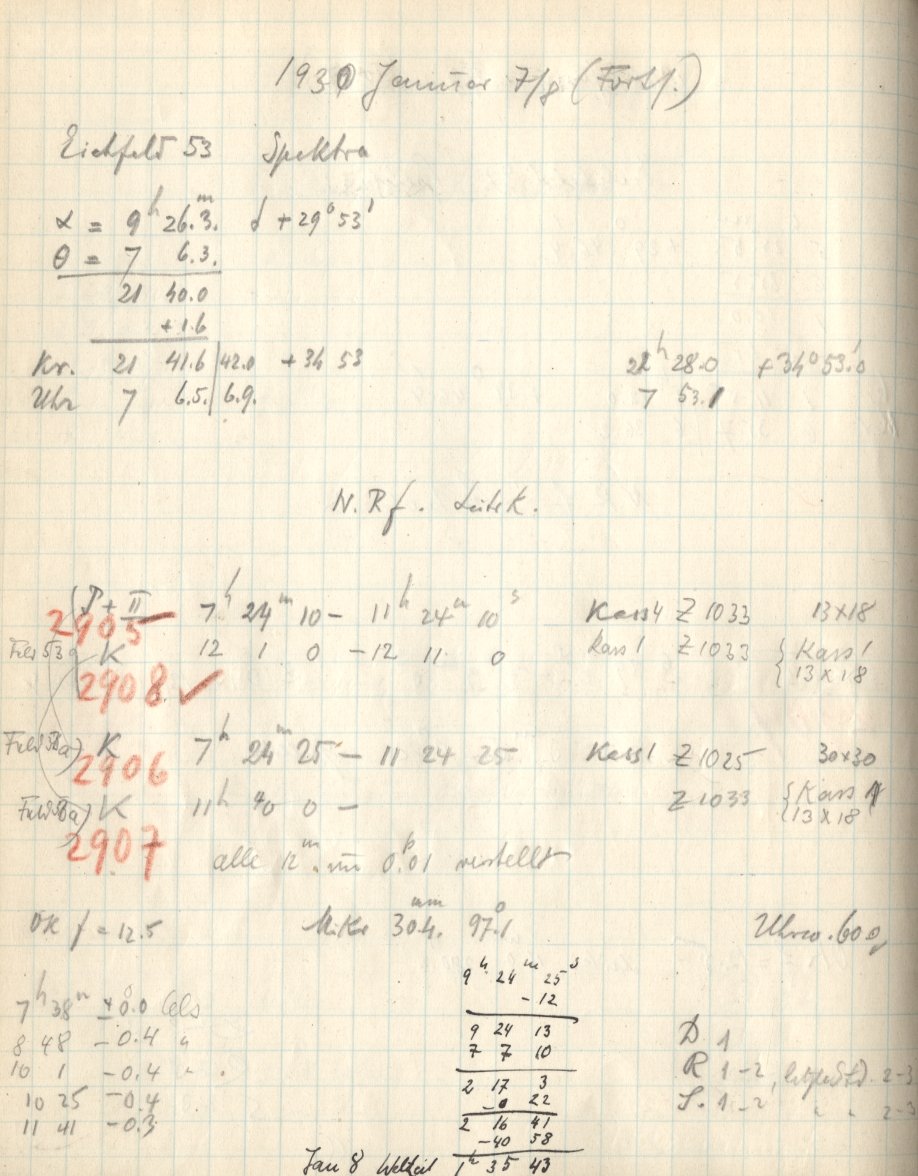 1930 Januar 7/8 (Forts.)
Eichfeld 53 Spektra
α = 9h 26.m3. δ +29° 53'
θ = 7 6.3.
21 40.0
+1.6
Kr. 21 41.6 | 42.0 +34 53
Uhr 7 6.5. | 6.9.
22h 28.0 +34° 53.'0
7 53.1
N. Rf. Leitek.
(I + II 7h 24m 10 – 11h 24m 10s Kass 4 Z 1033 13x18
2905
Feld 53a K 12 1 0 – 12 11 0 Kass 1 Z 1033 { Kass 1
13 x 18
2908 ✓
K 7h 24m 25 – 11 24 25 Kass 1 Z 1025 30x30
2906
K 11h 40 0 – Z 1033 { Kass
13 x 18
2907
alle 12m um 0.01 verstellt
OK f = 12.5 Mikr 30.4mm 97.°1 Uhrco. 600g
7h 38m ±0.0 Cels
8 48 –0.4 "
10 1 –0.4 " .
10 25 –0.4
11 41 –0.3
9h 24m 25s
– 12
9 24 13
7 7 10
2 17 3
–0 22
2 16 41
–40 58
Jan 8 Weltzeit 1h 35 43
D. 1
R 1–2, 2–3
S. 1–2 " " 2–3